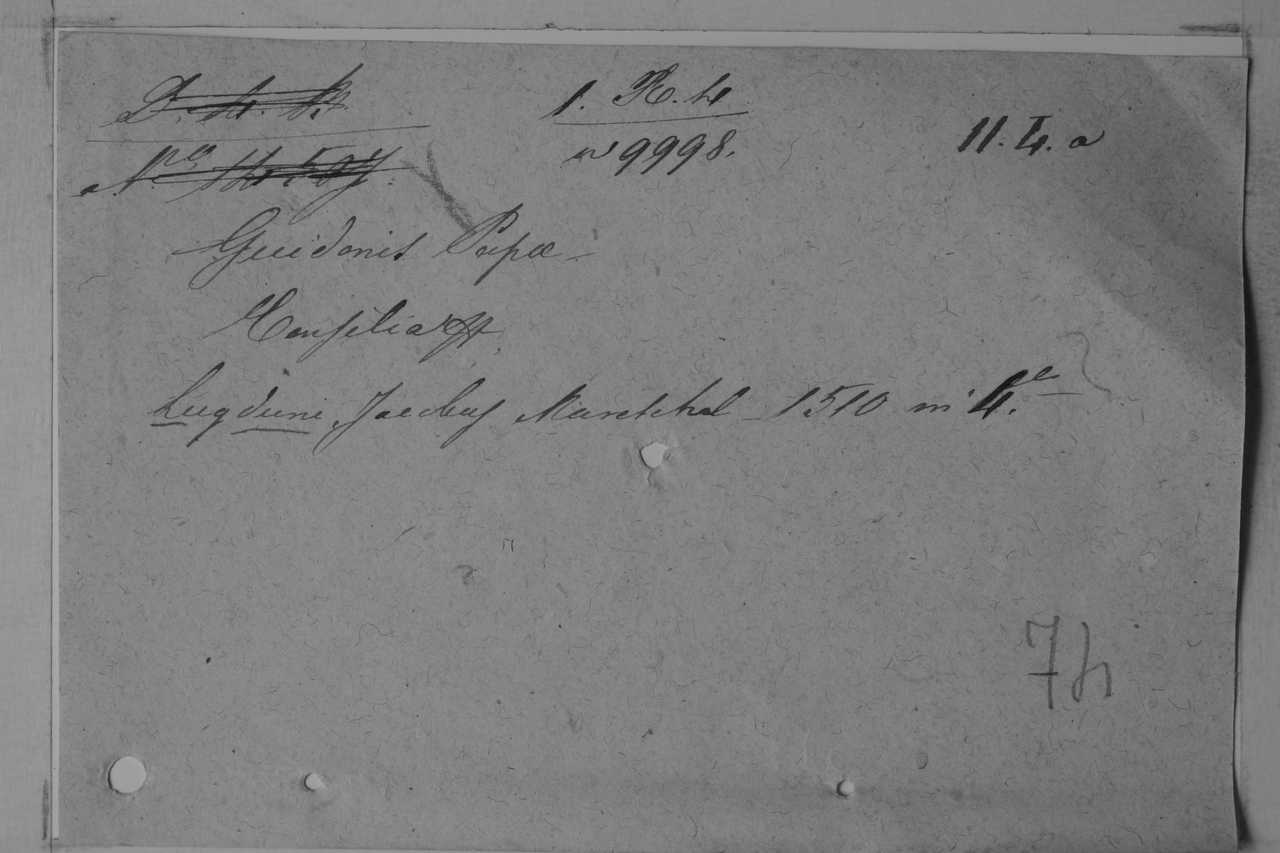 1. R. 4
n 9998.
11. 4. a
Guidonis Papæ
Consilia
Lugduni, Jacobus Mareschal 1510 in 4.
74